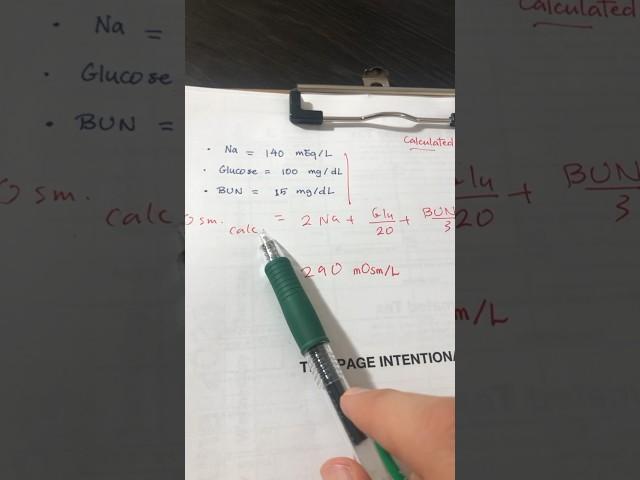 Calculated
• Na = 140 mEq/L
• Glucose = 100 mg/dL
• BUN = 15 mg/dL
Osm. calc = 2 Na + Glu/20 + BUN/3
290 mOsm/L
PAGE INTENTIONA